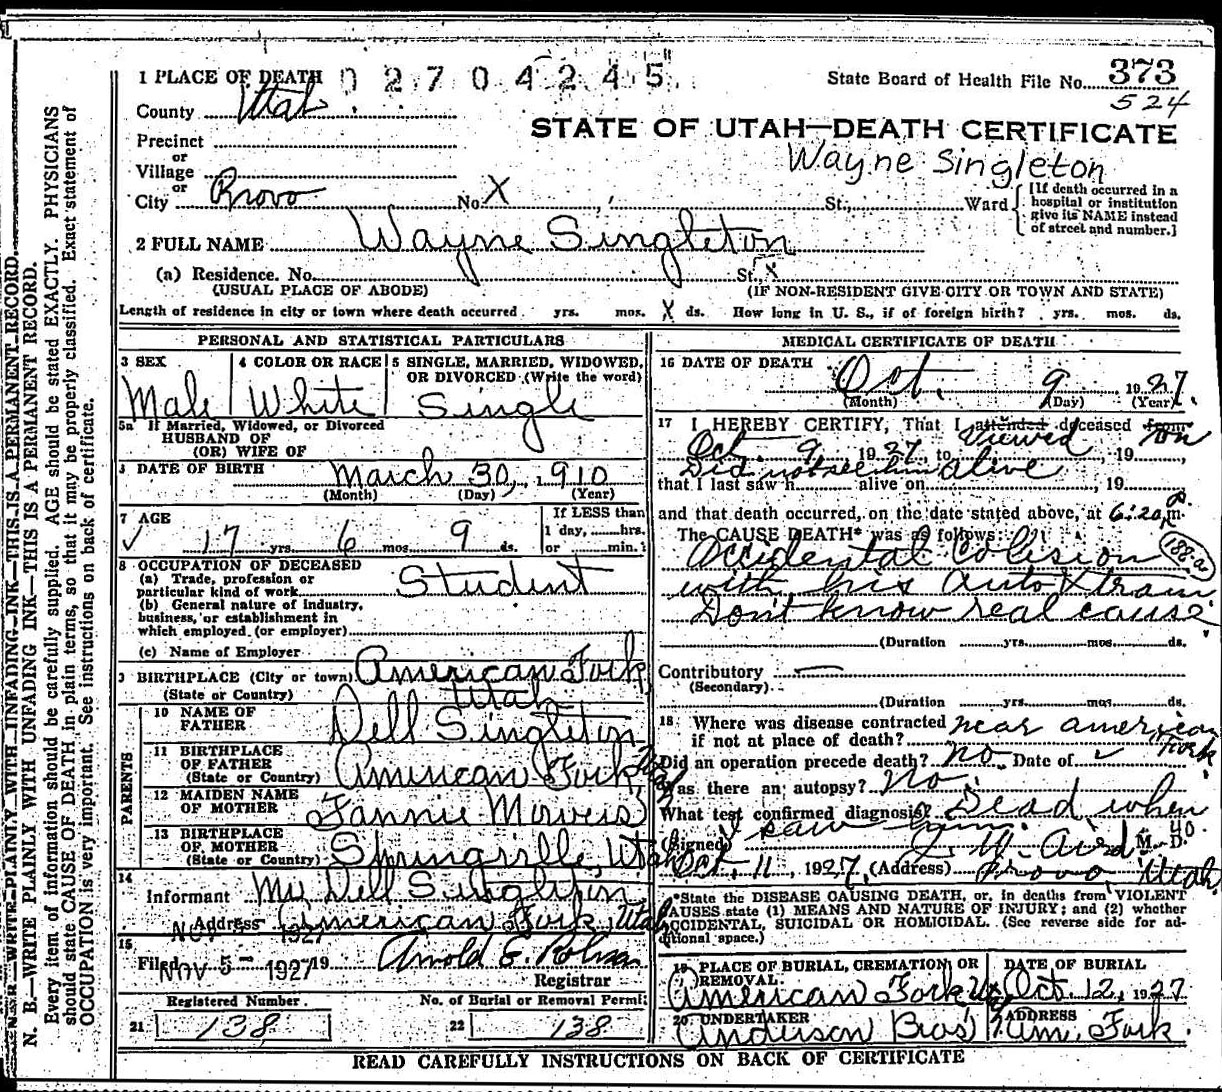 1 PLACE OF DEATH 02704245 State Board of Health File No. 373
County Utah 524
STATE OF UTAH—DEATH CERTIFICATE
Precinct
or
Village
or
Wayne Singleton
City Provo No. X St., Ward
[If death occurred in a hospital or institution give its NAME instead of street and number.]
2 FULL NAME Wayne Singleton
(a) Residence. No. St., X
(USUAL PLACE OF ABODE) (IF NON-RESIDENT GIVE CITY OR TOWN AND STATE)
Length of residence in city or town where death occurred yrs. mos. X ds. How long in U. S., if of foreign birth? yrs. mos. ds.
PERSONAL AND STATISTICAL PARTICULARS
3 SEX Male
4 COLOR OR RACE White
5 SINGLE, MARRIED, WIDOWED, OR DIVORCED (Write the word) Single
5a If Married, Widowed, or Divorced
HUSBAND OF
(OR) WIFE OF
DATE OF BIRTH March 30, 1910
(Month) (Day) (Year)
7 AGE 17 yrs. 6 mos. 9 ds.
If LESS than
1 day, hrs.
or min.
8 OCCUPATION OF DECEASED
(a) Trade, profession or
particular kind of work Student
(b) General nature of industry,
business, or establishment in
which employed (or employer)
(c) Name of Employer
BIRTHPLACE (City or town) American Fork
(State or Country) Utah
PARENTS
10 NAME OF FATHER Dell Singleton
11 BIRTHPLACE OF FATHER (State or Country) American Fork Utah
12 MAIDEN NAME OF MOTHER Fannie
13 BIRTHPLACE OF MOTHER (State or Country) Springville, Utah
14
Informant Dell Singleton
Address American Fork, Utah
NOV 1927
15
Filed NOV 5 - 1927 19 Arnold E.
Registrar
Registered Number. No. of Burial or Removal Permit
21 138 22 138
MEDICAL CERTIFICATE OF DEATH
16 DATE OF DEATH Oct. 9 1927.
(Month) (Day) (Year)
17 I HEREBY CERTIFY, That I attended viewed deceased from on
Oct. 9, 1927, to , 19
Did not see him alive
that I last saw h alive on , 19
and that death occurred, on the date stated above, at 6:20 m.
The CAUSE DEATH* was as follows:
Accidental Colision 188-a
with his Auto & train
Don't know real cause
(Duration yrs. mos. ds.
Contributory —
(Secondary)
(Duration yrs. mos. ds.
18 Where was disease contracted near american
if not at place of death? Fork
Did an operation precede death? no Date of
Was there an autopsy? No
What test confirmed diagnosis? Dead when
I saw him. 40
(Signed) Aird M. D.
Oct. 11, 1927, (Address) Provo Utah
*State the DISEASE CAUSING DEATH, or, in deaths from VIOLENT
CAUSES state (1) MEANS AND NATURE OF INJURY; and (2) whether
ACCIDENTAL, SUICIDAL OR HOMICIDAL. (See reverse side for ad-
ditional space.)
19 PLACE OF BURIAL, CREMATION OR REMOVAL. American Fork
DATE OF BURIAL Oct. 12, 1927
20 UNDERTAKER Anderson Bros
ADDRESS Am. Fork.
READ CAREFULLY INSTRUCTIONS ON BACK OF CERTIFICATE
WRITE PLAINLY WITH UNFADING INK—THIS IS A PERMANENT RECORD.
N. B.—WRITE PLAINLY WITH UNFADING INK—THIS IS A PERMANENT RECORD.
Every item of information should be carefully supplied. AGE should be stated EXACTLY. PHYSICIANS
should state CAUSE OF DEATH in plain terms, so that it may be properly classified. Exact statement of
OCCUPATION is very important. See instructions on back of certificate.